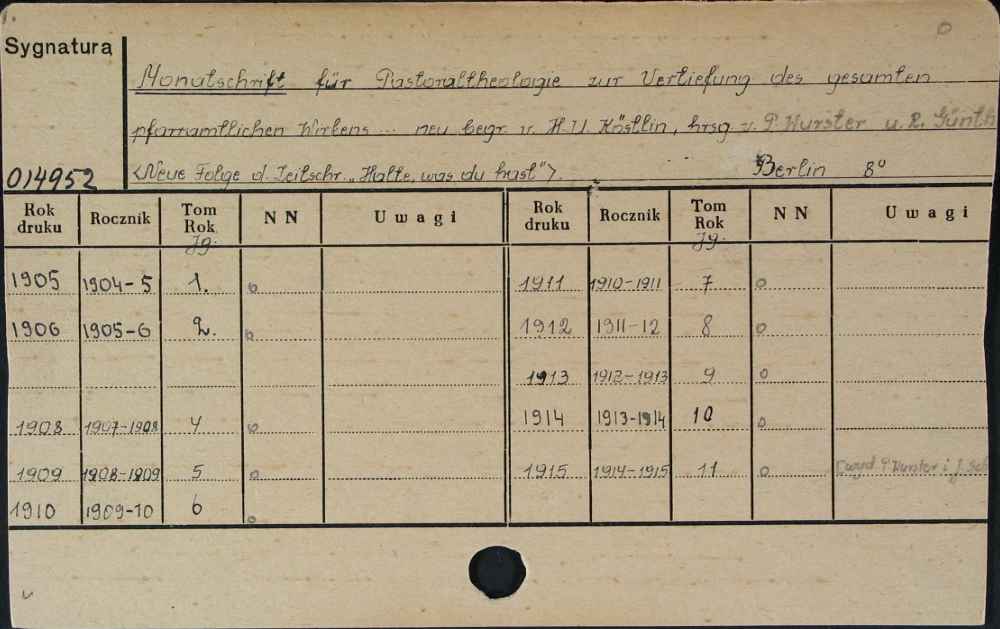 Sygnatura
Monatschrift für Pastoraltheologie zur Vertiefung des gesamten
pfarramtlichen Wirkens ... neu begr. v. H. U. Köstlin, hrsg v. P. Wurster u. R. Günth
<Neue Folge d. Zeitschr. „Halte, was du hast">. Berlin 8º
014952
Rok druku Rocznik Tom Rok NN Uwagi Rok druku Rocznik Tom Rok NN Uwagi
Jg. Jg.
1905 1904-5 1. o 1911 1910-1911 7 o
1906 1905-6 2. o 1912 1911-12 8 o
1913 1912-1913 9 o
1908 1907-1908 4 o 1914 1913-1914 10 o
1909 1908-1909 5 o 1915 1914-1915 11 o P. Wurster i J. Sch
1910 1909-10 6 o